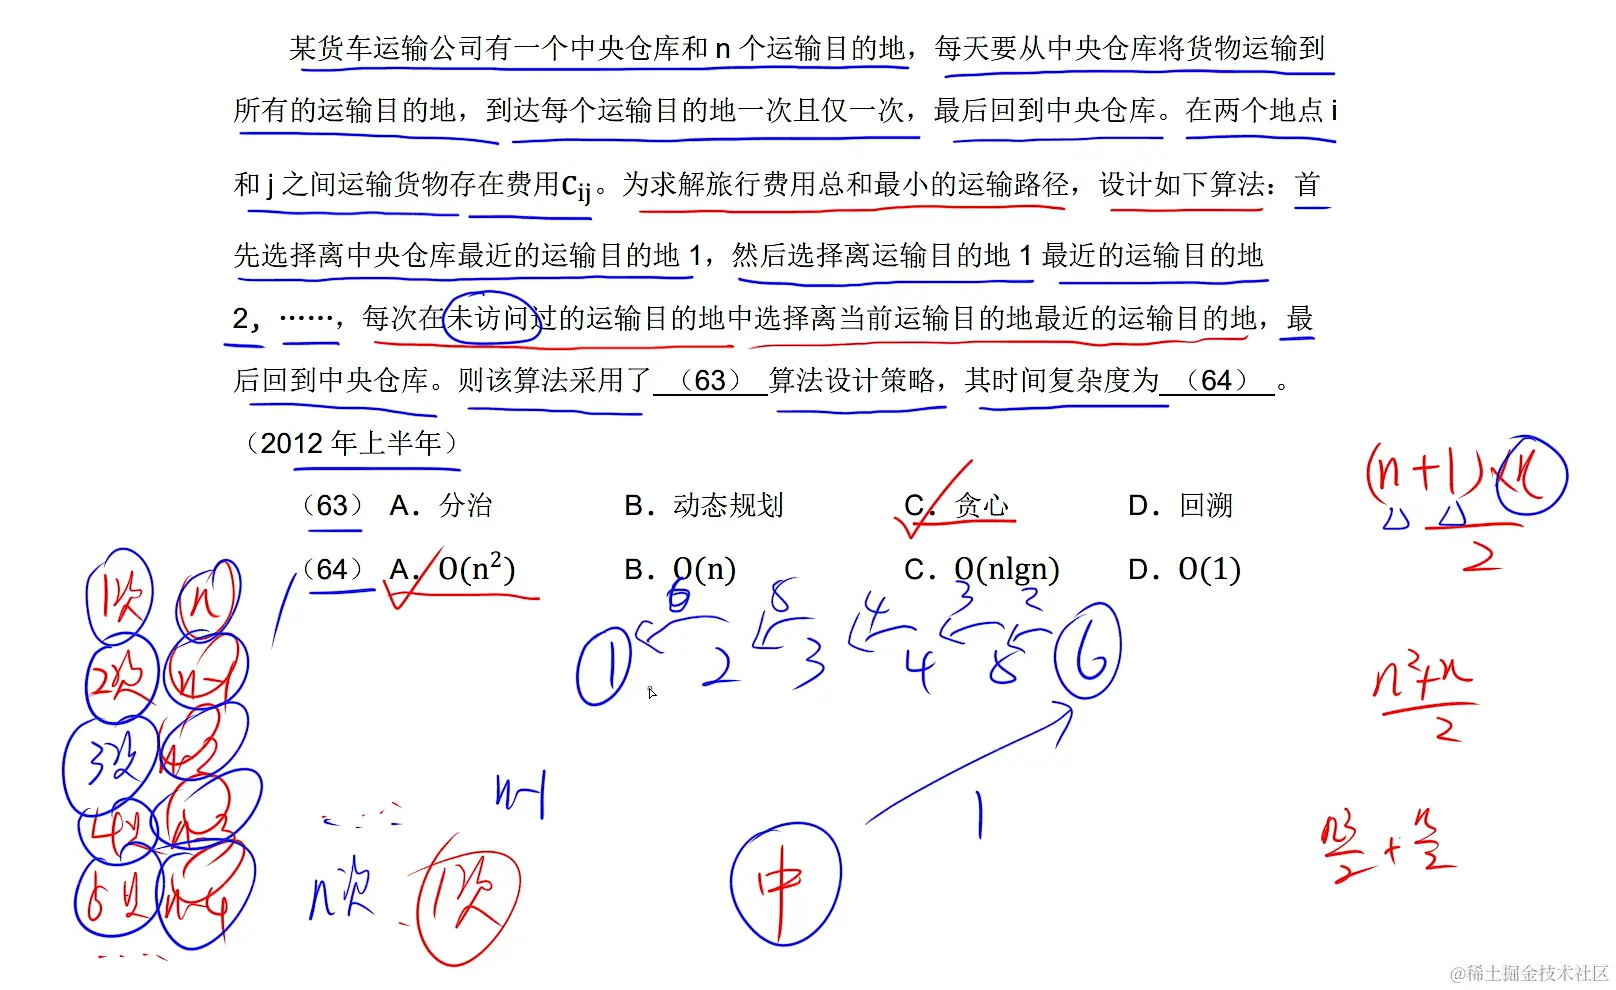 某货车运输公司有一个中央仓库和 n 个运输目的地，每天要从中央仓库将货物运输到
所有的运输目的地，到达每个运输目的地一次且仅一次，最后回到中央仓库。在两个地点 i
和 j 之间运输货物存在费用C_ij。为求解旅行费用总和最小的运输路径，设计如下算法：首
先选择离中央仓库最近的运输目的地 1，然后选择离运输目的地 1 最近的运输目的地
2，……，每次在未访问过的运输目的地中选择离当前运输目的地最近的运输目的地，最
后回到中央仓库。则该算法采用了 （63） 算法设计策略，其时间复杂度为 （64） 。
（2012 年上半年）
（63） A．分治 B．动态规划 C．贪心 D．回溯
（64） A．O(n²) B．O(n) C．O(nlgn) D．O(1)
(n+1)×n
2
1次 n
2次 n-1
3次 n-2
n-3
n-4
6 8 4 3 2
1 2 3 4 8 6
n²+n
2
n-1
1
n次 1次
中
n²/2 + n/2
@稀土掘金技术社区